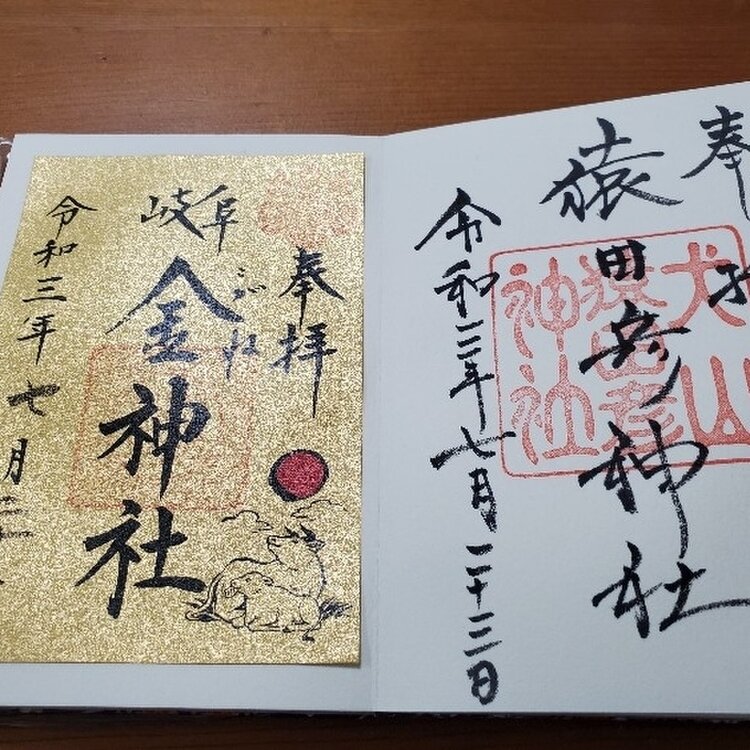 奉拝
犬山
猿田彦神社
猿田彦神社
令和三年七月二十三日
奉拝
岐阜
こがね
金神社
令和三年七月二十